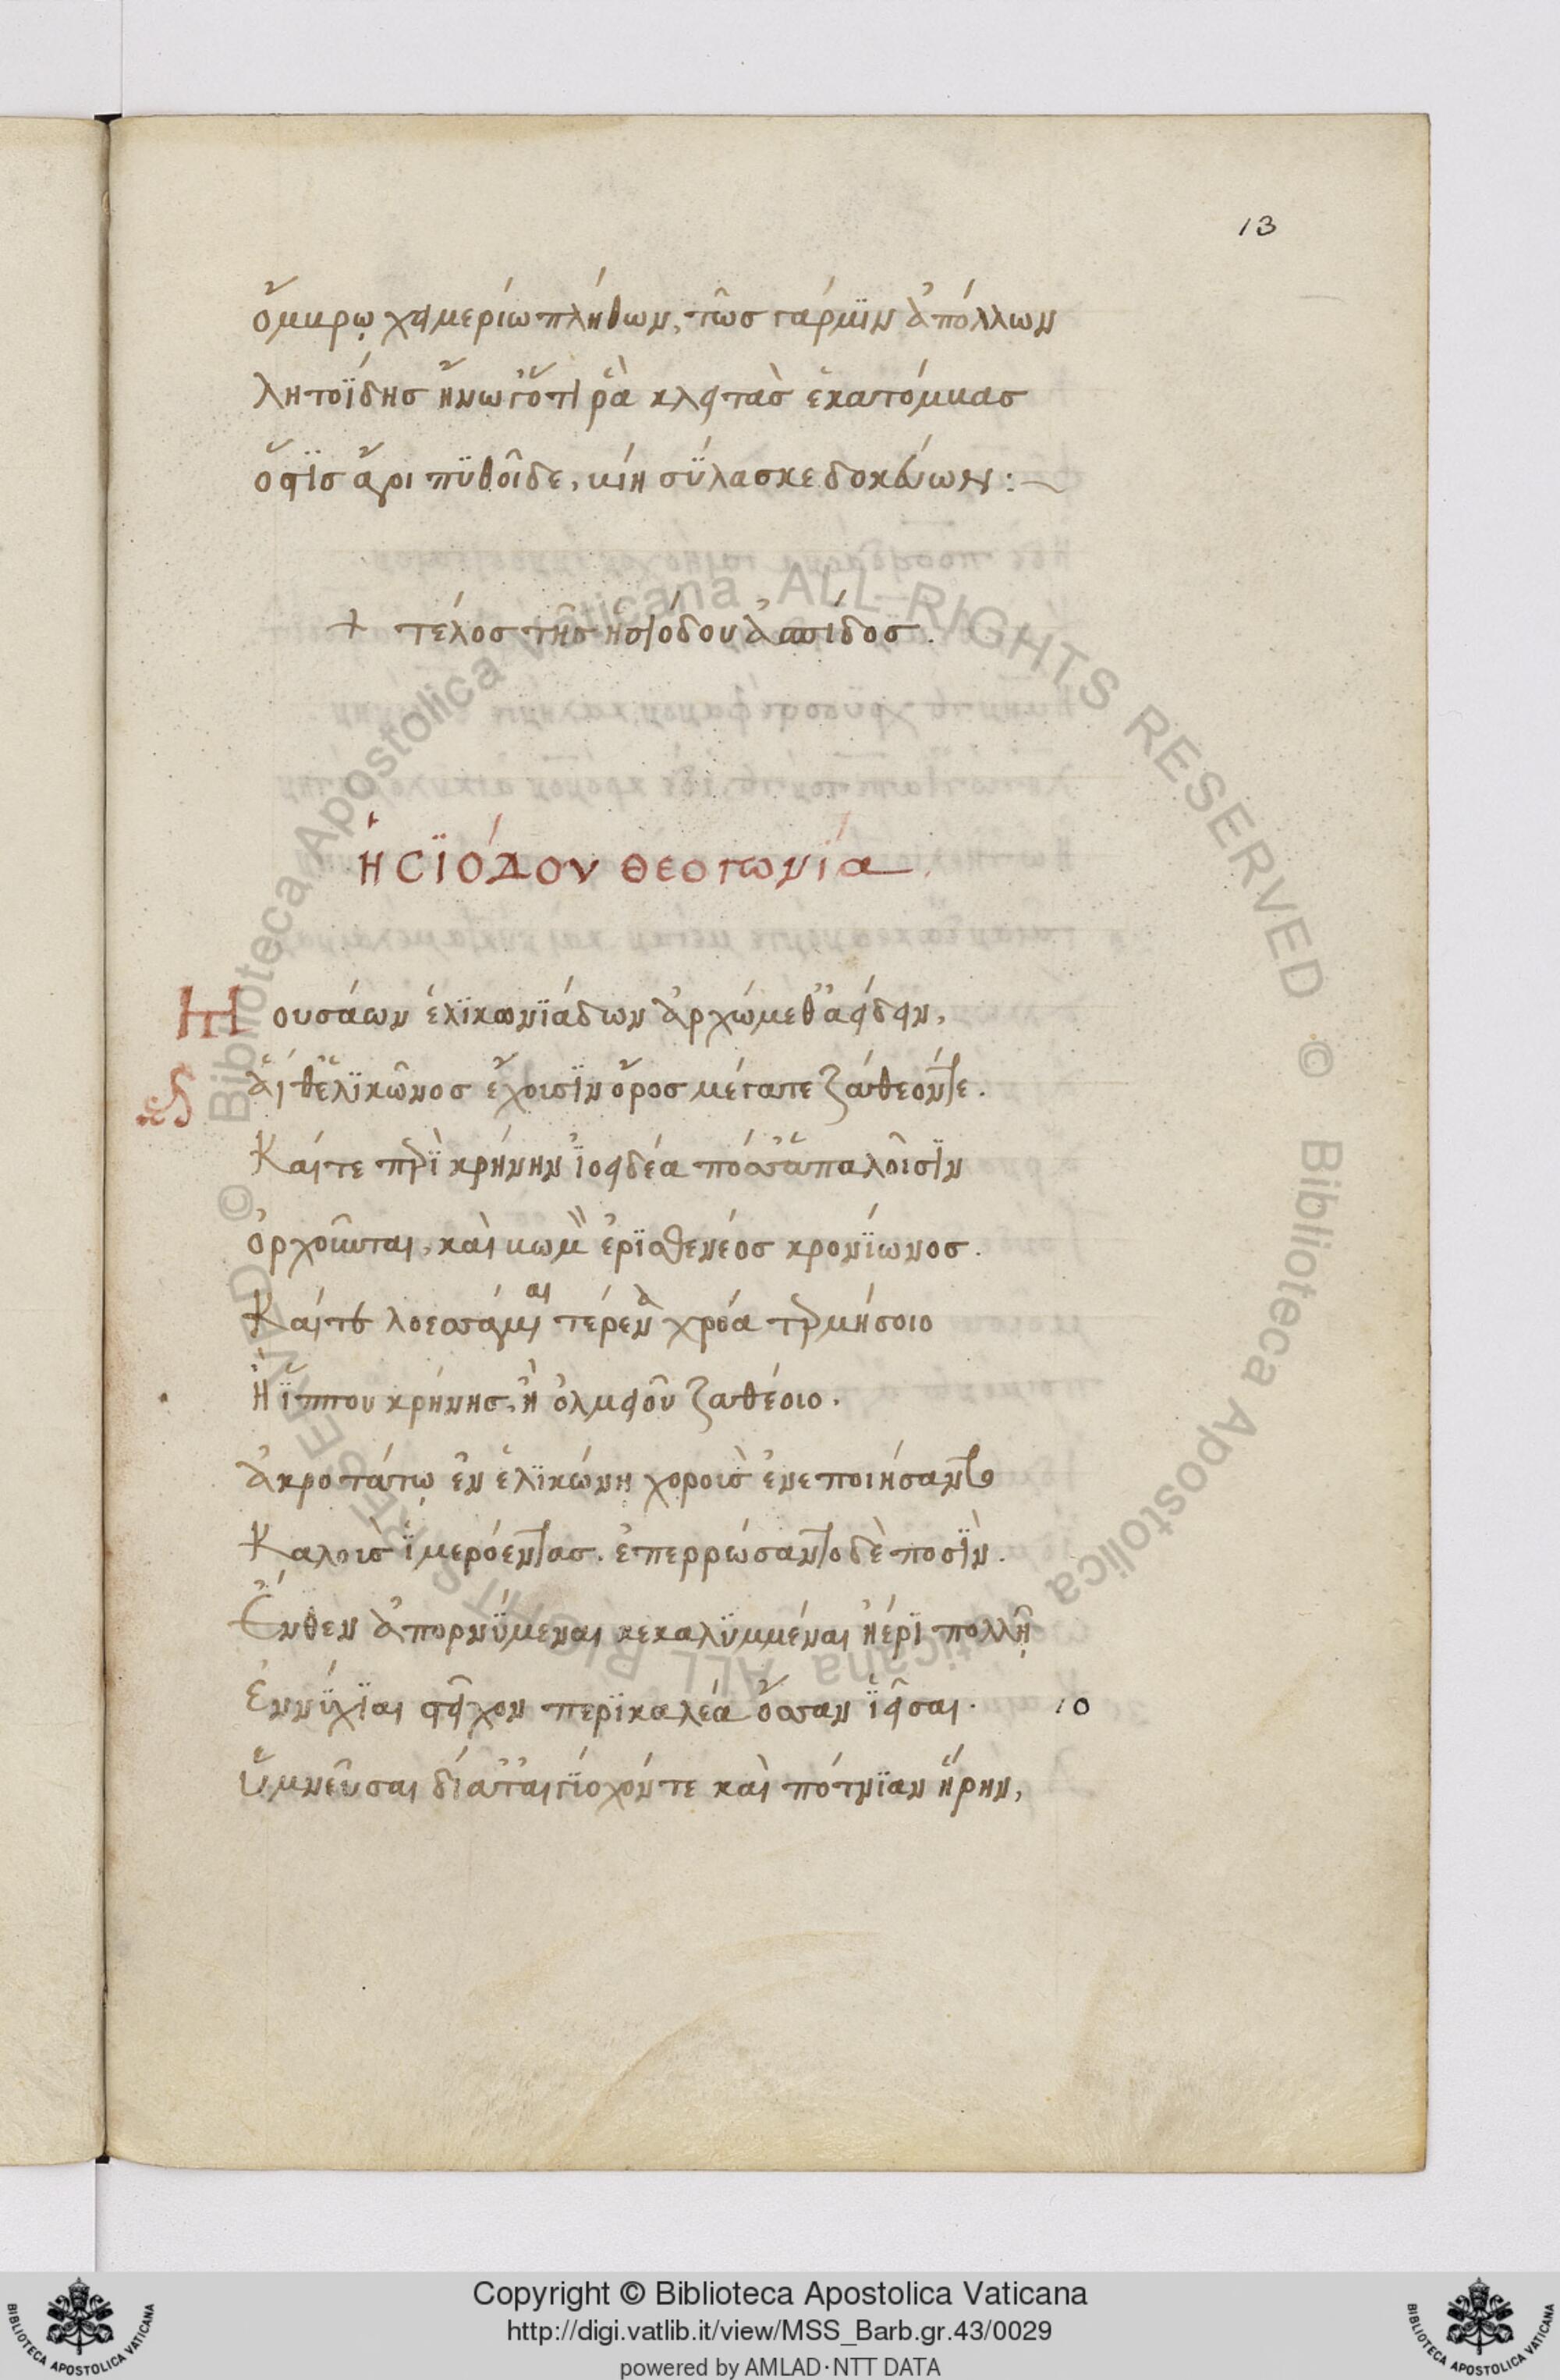 13
ὄμβρῳ χειμερίω πλήθων, τῶσ γάρ μϊν ἀπόλλων
λητοΐδησ ἤνωγ' ὅτι ῥὰ κλειτὰσ ἑκατόμβασ
ὅστϊσ ἄγοι πϋθοῖδε, βίη σΰλασκε δοκεύων:~
+ τέλοσ τῆσ ἡσιόδου ἀσπίδοσ.
ἡσϊόδου θεογωνία
Μουσάων ἑλϊκωνϊάδων ἀρχώμεθ' ἀείδειν,
ἅι θ' ἑλϊκῶνοσ ἔχουσϊν ὄροσ μέγατε ζάθεόντε.
Καίτε περὶ κρήνην ἰοειδέα πόσσ' ἁπαλοῖσϊν
ὀρχοῦνται, καὶ βωμὸν ἐρϊσθενέοσ κρονΐωνοσ.
Καίτε λοεσσάμεναι τέρενα χρόα περμήσοιο
Ἠ ἵππου κρήνησ, ἢ ὀλμειοῦ ζαθέοιο.
ἀκροτάτῳ ἐν ἑλϊκώνη χοροὺσ ἐνεποιήσαντο
Καλοὺσ ἱμερόεντασ. ἐπερρώσαντο δὲ ποσϊν.
Ἔνθεν ἀπορνΰμεναι κεκαλϋμμέναι ἠέρϊ πολλῆ
Ἐννΰχϊαι στεῖχον περϊκαλέα ὄσσαν ἱεῖσαι. 10
ὑμνεῦσαι δία τ' αἰγϊόχόντε καὶ πότνϊαν ἥρην,
Copyright © Biblioteca Apostolica Vaticana
http://digi.vatlib.it/view/MSS_Barb.gr.43/0029
powered by AMLAD·NTT DATA
© Biblioteca Apostolica Vaticana ALL RIGHTS RESERVED
© Biblioteca Apostolica Vaticana ALL RIGHTS RESERVED
BIBLIOTECA APOSTOLICA VATICANA
BIBLIOTECA APOSTOLICA VATICANA